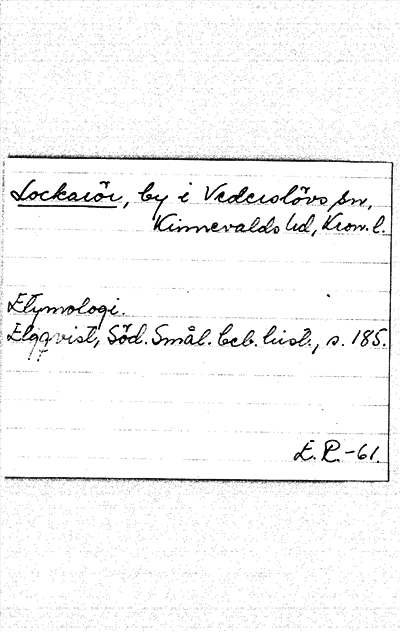 Lockarör, by i Vederslövs sn,
Kinnevalds hd, Kron. l.
Etymologi.
Elgqvist, Söd. Smål. beb. hist., s. 185.
E. P. -61.